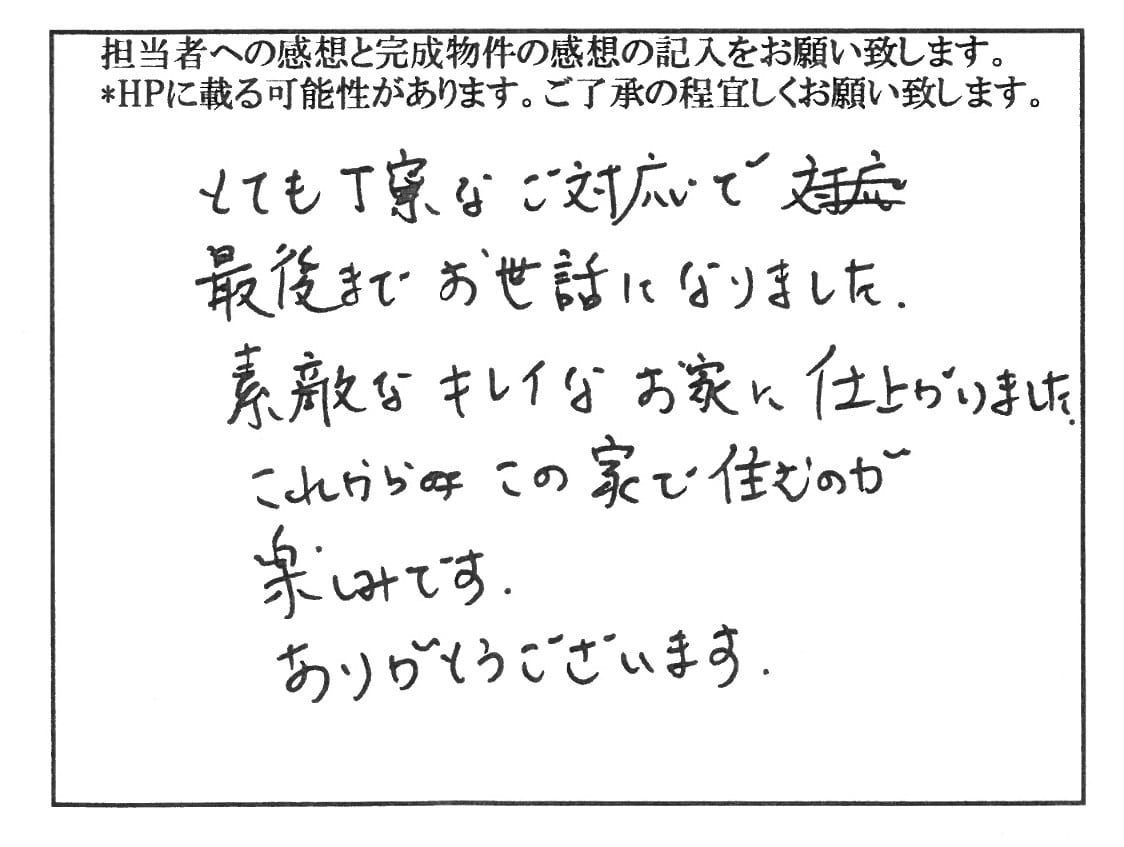 担当者への感想と完成物件の感想の記入をお願い致します。
*HPに載る可能性があります。ご了承の程宜しくお願い致します。
とても丁寧なご対応で
最後までお世話になりました.
素敵なキレイなお家に仕上がりました.
これから この家で住むのが
楽しみです.
ありがとうございます.